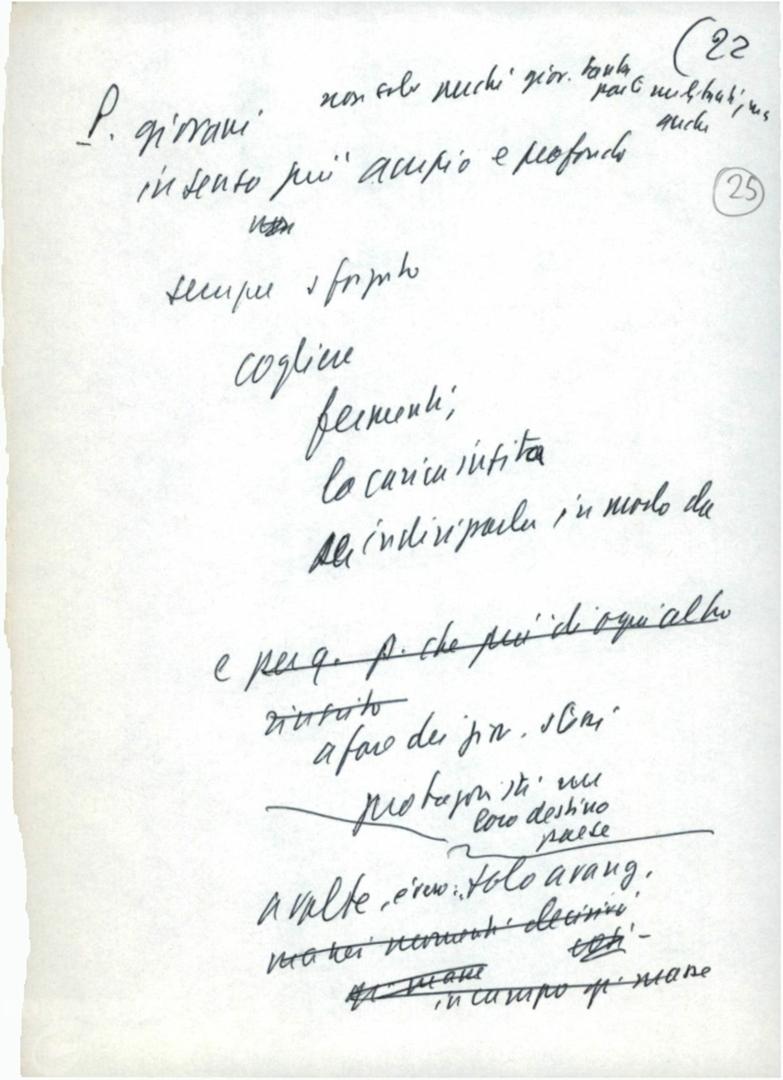 (22
non solo perché giov. tanta
parte militanti, ma
anche
P. giovani
in senso più ampio e profondo
25
non
sempre sforzato
cogliere
fermenti,
la carica insita
indirizzarla in modo da
e per q. p. che più di ogni altro
riuscito
a fare dei giov.
protagonisti
loro destino
paese
a volte, è vero: solo avang.
ma nei momenti decisivi
così -
gr. masse
in campo gr. masse